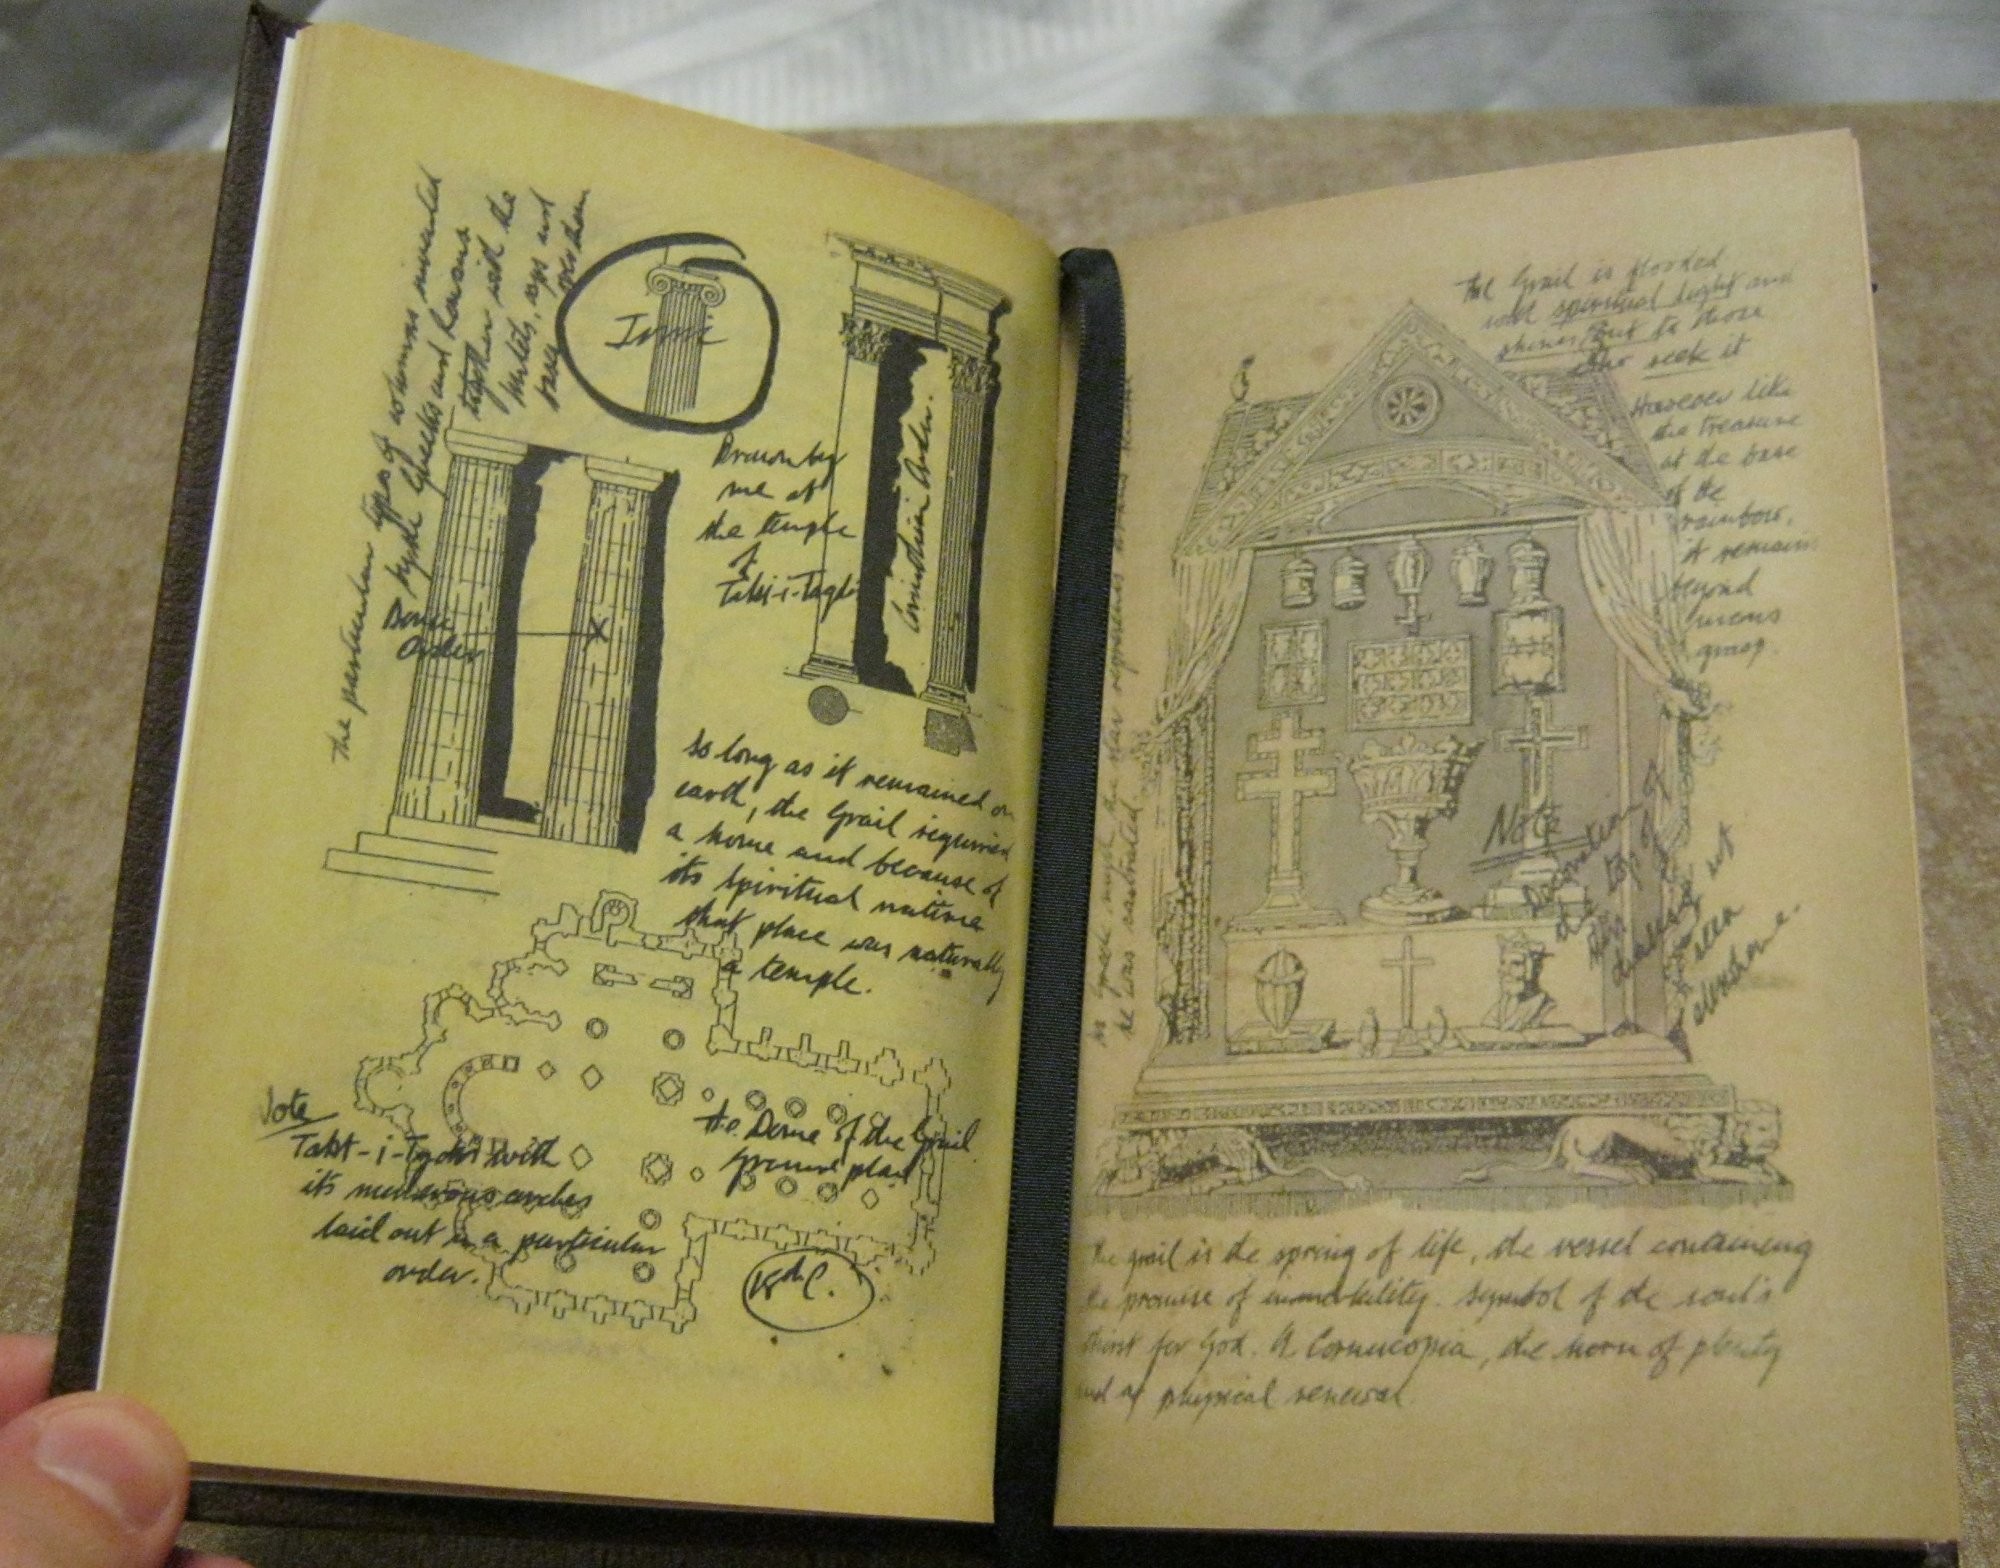 The particular types of columns invented
by the Greeks and Romans
together with the
lintels, caps and
bases
Ionic
Drawn by
me at
the temple
of
Takt-i-Taqdis
Corinthian Order.
Doric
Order
So long as it remained on
earth, the Grail required
a home and because of
its spiritual nature
that place was naturally
a temple.
Note
Takt-i-Taqdis with
its numerous arches
laid out in a particular
order.
The Dome of the Grail
ground plan
The Grail is flooded
with spiritual light and
shines out to those
who seek it
However like
the treasure
at the base
of the
rainbow,
it remains
beyond
mens
grasp.
Note
Decoration of
the top of
this
chalice not
seen
elsewhere.
he was castrated
the grail is the spring of life, the vessel containing
the promise of immortality. Symbol of the soul's
thirst for God. A Cornucopia, the horn of plenty
and of physical renewal.